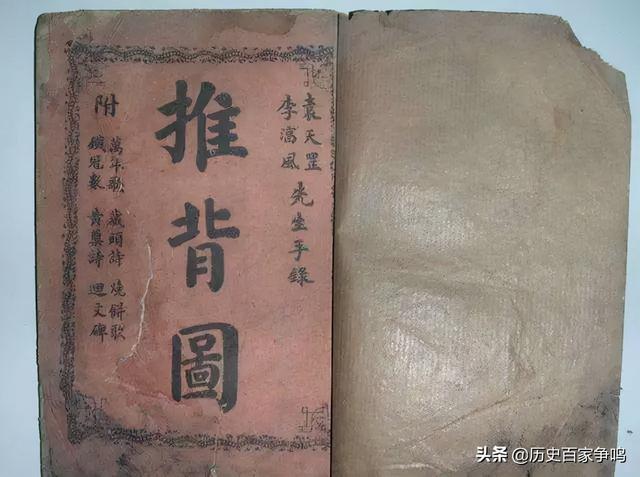 袁天罡
李淳風
先生手錄
推背圖
附
萬年歌 藏頭詩 燒餅歌
鐵冠數 黃蘗詩 迴文碑
头条 @历史百家争鸣